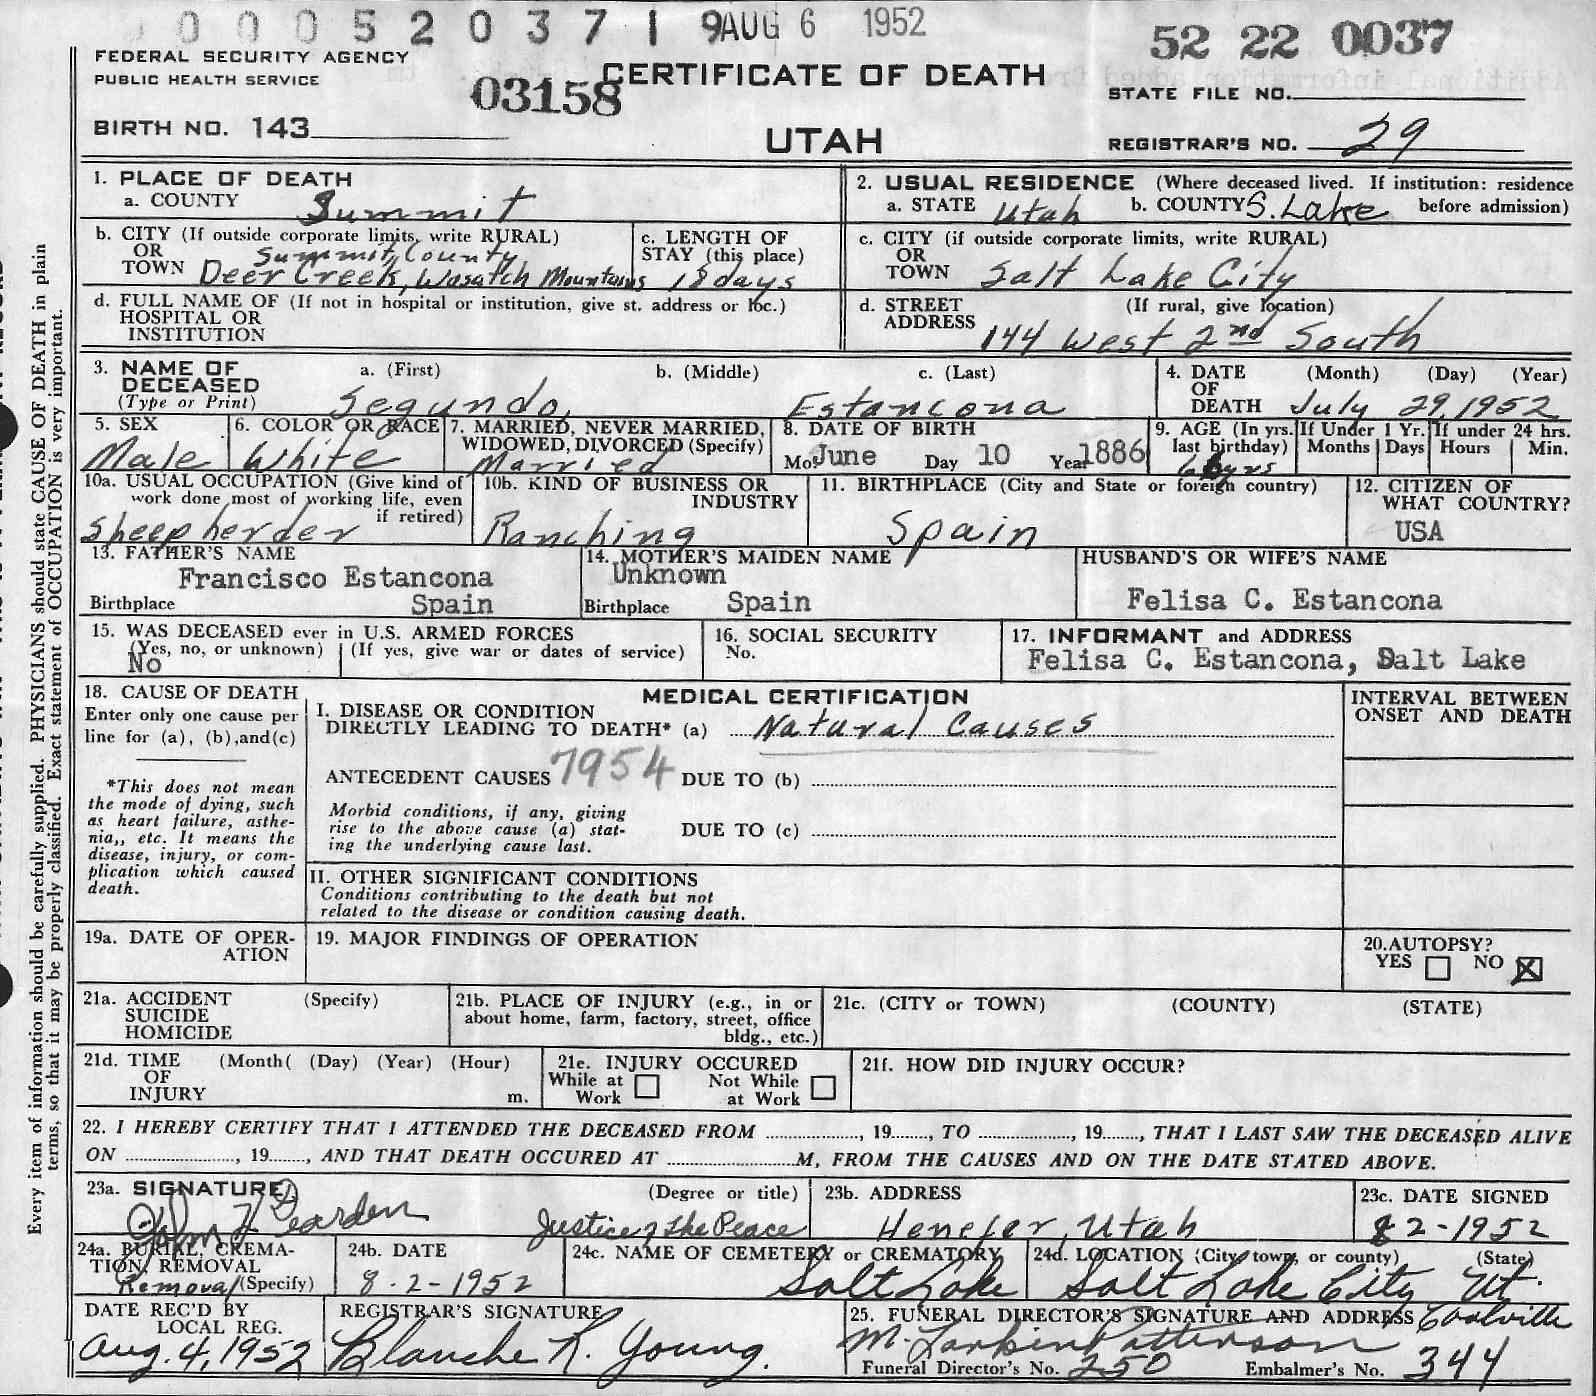 00052037 19 AUG 6 1952
52 22 0037
FEDERAL SECURITY AGENCY
PUBLIC HEALTH SERVICE
03158
CERTIFICATE OF DEATH
STATE FILE NO.
BIRTH NO. 143
UTAH
REGISTRAR'S NO. 29
1. PLACE OF DEATH
a. COUNTY Summit
2. USUAL RESIDENCE (Where deceased lived. If institution: residence
a. STATE Utah b. COUNTY S. Lake before admission)
b. CITY (If outside corporate limits, write RURAL)
OR Summit County
TOWN Deer Creek, Wasatch Mountains
c. LENGTH OF
STAY (this place)
18 days
c. CITY (if outside corporate limits, write RURAL)
OR
TOWN Salt Lake City
d. FULL NAME OF (If not in hospital or institution, give st. address or loc.)
HOSPITAL OR
INSTITUTION
d. STREET (If rural, give location)
ADDRESS 144 West 2nd South
3. NAME OF a. (First) b. (Middle) c. (Last)
DECEASED
(Type or Print) Segundo Estancona
4. DATE (Month) (Day) (Year)
OF
DEATH July 29, 1952
5. SEX
Male
6. COLOR OR RACE
White
7. MARRIED, NEVER MARRIED,
WIDOWED, DIVORCED (Specify)
Married
8. DATE OF BIRTH
Mo June Day 10 Year 1886
9. AGE (In yrs. If Under 1 Yr. If under 24 hrs.
last birthday) Months Days Hours Min.
yrs
10a. USUAL OCCUPATION (Give kind of
work done most of working life, even
if retired)
Sheepherder
10b. KIND OF BUSINESS OR
INDUSTRY
Ranching
11. BIRTHPLACE (City and State or foreign country)
Spain
12. CITIZEN OF
WHAT COUNTRY?
USA
13. FATHER'S NAME
Francisco Estancona
Birthplace Spain
14. MOTHER'S MAIDEN NAME
Unknown
Birthplace Spain
HUSBAND'S OR WIFE'S NAME
Felisa C. Estancona
15. WAS DECEASED ever in U.S. ARMED FORCES
(Yes, no, or unknown) (If yes, give war or dates of service)
No
16. SOCIAL SECURITY
No.
17. INFORMANT and ADDRESS
Felisa C. Estancona, Salt Lake
18. CAUSE OF DEATH
Enter only one cause per
line for (a), (b),and(c)
*This does not mean
the mode of dying, such
as heart failure, asthe-
nia,, etc. It means the
disease, injury, or com-
plication which caused
death.
MEDICAL CERTIFICATION
I. DISEASE OR CONDITION
DIRECTLY LEADING TO DEATH* (a) Natural Causes
ANTECEDENT CAUSES 7954 DUE TO (b)
Morbid conditions, if any, giving
rise to the above cause (a) stat-
ing the underlying cause last.
DUE TO (c)
II. OTHER SIGNIFICANT CONDITIONS
Conditions contributing to the death but not
related to the disease or condition causing death.
INTERVAL BETWEEN
ONSET AND DEATH
19a. DATE OF OPER-
ATION
19. MAJOR FINDINGS OF OPERATION
20.AUTOPSY?
YES NO X
21a. ACCIDENT (Specify)
SUICIDE
HOMICIDE
21b. PLACE OF INJURY (e.g., in or
about home, farm, factory, street, office
bldg., etc.)
21c. (CITY or TOWN) (COUNTY) (STATE)
21d. TIME (Month( (Day) (Year) (Hour)
OF
INJURY m.
21e. INJURY OCCURED
While at Not While
Work at Work
21f. HOW DID INJURY OCCUR?
22. I HEREBY CERTIFY THAT I ATTENDED THE DECEASED FROM , 19 , TO , 19 , THAT I LAST SAW THE DECEASED ALIVE
ON , 19 , AND THAT DEATH OCCURED AT M, FROM THE CAUSES AND ON THE DATE STATED ABOVE.
23a. SIGNATURE (Degree or title)
John Justice of the Peace
23b. ADDRESS
Henefer, Utah
23c. DATE SIGNED
8 2-1952
24a. BURIAL, CREMA-
TION, REMOVAL
Removal (Specify)
24b. DATE
8-2-1952
24c. NAME OF CEMETERY or CREMATORY
Salt Lake
24d. LOCATION (City, town, or county) (State)
Salt Lake City Ut.
DATE REC'D BY
LOCAL REG.
Aug. 4, 1952
REGISTRAR'S SIGNATURE
Blanche R. Young.
25. FUNERAL DIRECTOR'S SIGNATURE AND ADDRESS Coalville
M. Larkin Patterson
Funeral Director's No. 250 Embalmer's No. 344
Every item of information should be carefully supplied. PHYSICIANS should state CAUSE OF DEATH in plain
terms, so that it may be properly classified. Exact statement of OCCUPATION is very important.